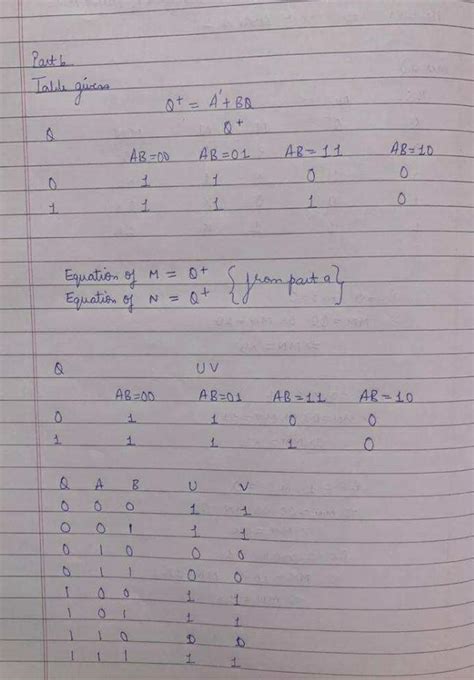 Part b
Table given
Q⁺ = A' + BQ
Q Q⁺
AB=00 AB=01 AB=11 AB=10
0 1 1 0 0
1 1 1 1 0
Equation of M = Q⁺ { from part a }
Equation of N = Q⁺
Q UV
AB=00 AB=01 AB=11 AB=10
0 1 1 0 0
1 1 1 1 0
Q A B U V
0 0 0 1 1
0 0 1 1 1
0 1 0 0 0
0 1 1 0 0
1 0 0 1 1
1 0 1 1 1
1 1 0 0 0
1 1 1 1 1